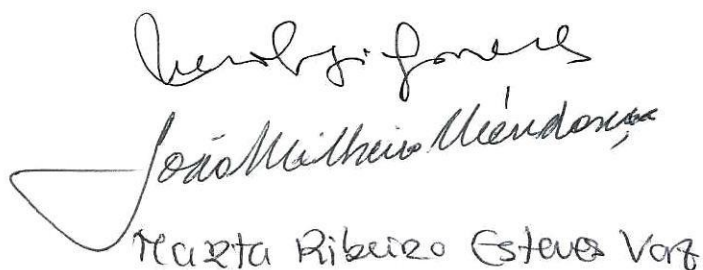 João Milheiro Mendonça
Marta Ribeiro Esteves Vaz